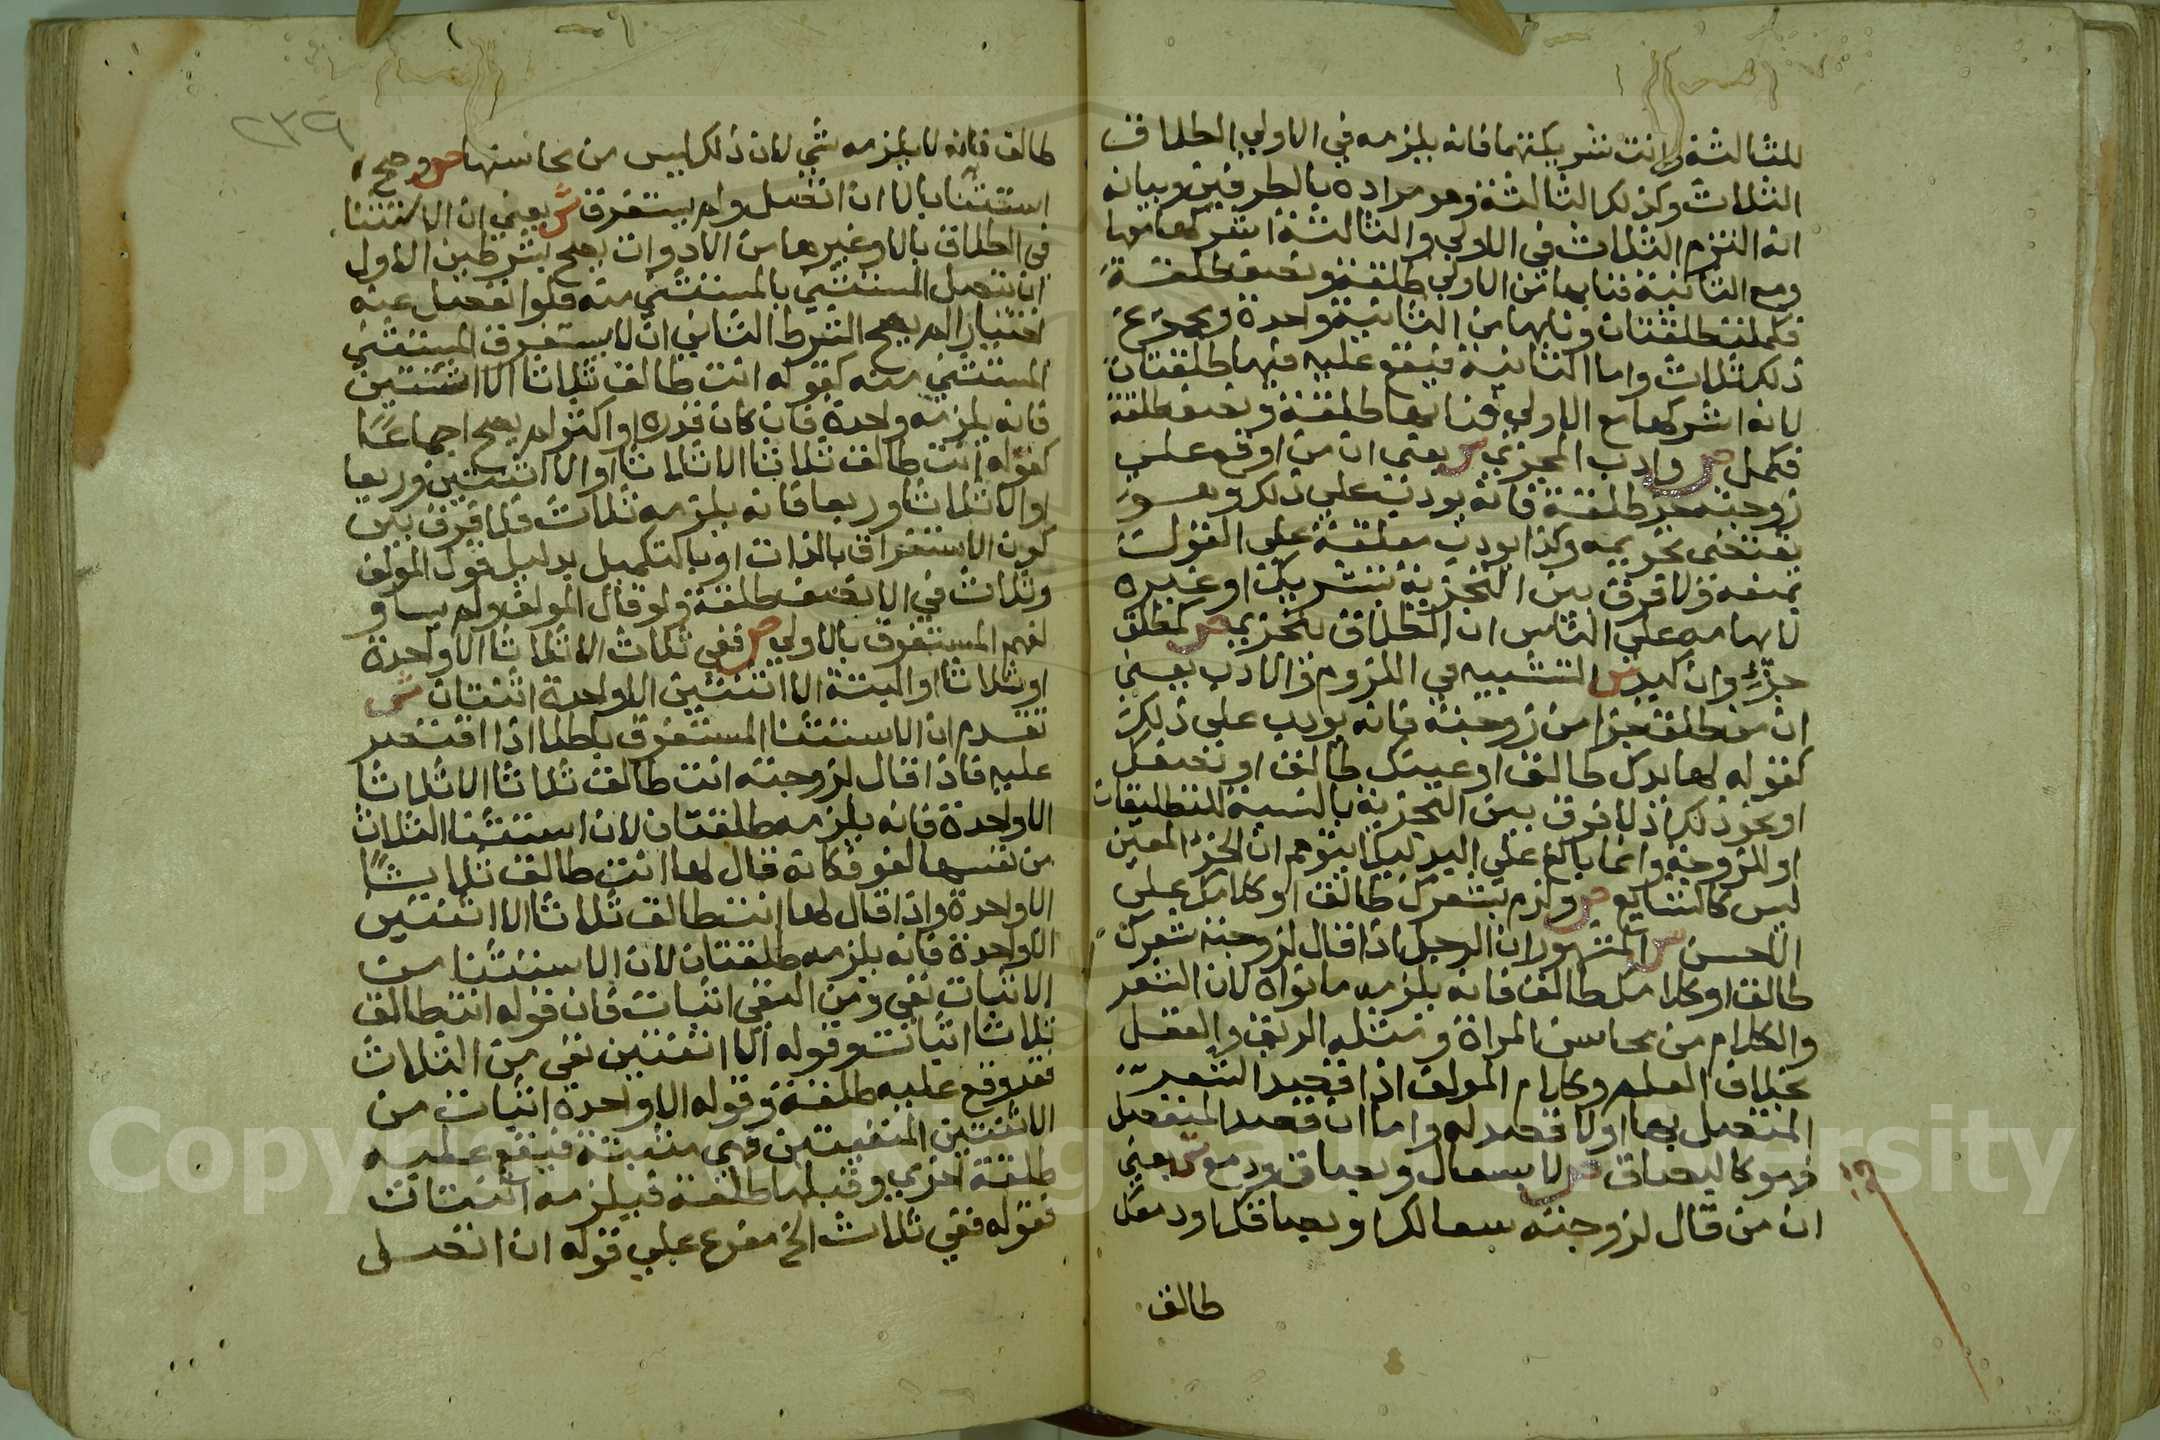 للثالثة وانت شريكتهما فانه يلزمه في الاولي الطلاق
الثلاث وكذلك الثالثة وهو مراده بالطرفين وبيانه
انه التزم الثلاث في الاولي والثالثة اشركها معها
ومع الثانية فنابها من الاولي طلقة ونصف طلقة
فكملت طلقتان ونابها من الثانية واحدة ومجموع
ذلك ثلاث واما الثانية فيقع عليه فيها طلقتان
لانه اشركها مع الاولي فنابها طلقة ونصف طلقة
فكمل ص وادب المجزي ش يعني ان من اوقع علي
زوجته جزء طلقة فانه يودب علي ذلك وهو
يقتضي تحريمه وكذا يودب معلقه علي القول
بمنعه ولا فرق بين التجزية بتشريك او غيره
لابهامه علي الناس ان الطلاق يتجزي ص كمطلق
جزء وان كيد ش التشبيه في اللزوم والادب يعني
ان من طلق جزا من زوجته فانه يودب علي ذلك
كقوله لها يدك طالق او عينك طالق او نصفك
او نحو ذلك اذ لا فرق بين التجزية بالنسبة للتطليقات
او للزوجة وانما بالغ علي اليد ليلا يتوهم ان الجزء المعين
ليس كالشايع ص ولزم بشعرك طالق او كلامك علي
الاحسن ش المشهور ان الرجل اذا قال لزوجته شعرك
طالق او كلامك طالق فانه يلزمه ما نواه لان الشعر
والكلام من محاسن المراة ومثله الريق والعقل
بخلاف العلم وكلام المولف اذا قصد الشعر
المتصل بها او لا قصد له واما ان قصد المنفصل
فهو كالبصاق ص لا بسعال وبصاق ودمع ش يعني
ان من قال لزوجته سعالك او بصاقك او دمعك
طالق
٢٣٩
طالق فانه لا يلزمه شي لان ذلك ليس من محاسنها ص وصح
استثنا بالا ان اتصل ولم يستغرق ش يعني ان الاستثنا
في الطلاق بالا وغيرها من الادوات يصح بشرطين الاول
ان يتصل المستثني بالمستثني منه فلو انفصل عنه
اختيارا لم يصح الشرط الثاني ان لا يستغرق المستثني
المستثني منه كقوله انت طالق ثلاثا الا اثنتين
فانه يلزمه واحدة فان كان قدره او اكثر لم يصح اجماعا
كقوله انت طالق ثلاثا الا ثلاثا او الا اثنتين وربعا
او الا ثلاثا وربعا فانه يلزمه ثلاث فلا فرق بين
كون الاستغراق بالذات او بالتكميل بدليل قول المولف
وثلاث في الا نصف طلقة ولو قال المولف ولم يساو
لفهم المستغرق بالاولي ص ففي ثلاث الا ثلاثا الا واحدة
او ثلاثا او البتة الا اثنتين الا واحدة اثنتان ش
تقدم ان الاستثنا المستغرق باطل اذا اقتصر
عليه فاذا قال لزوجته انت طالق ثلاثا الا ثلاثا
الا واحدة فانه يلزمه طلقتان لان استثنا الثلاث
من نفسها لغو فكانه قال لها انت طالق ثلاثا
الا واحدة واذا قال لها انت طالق ثلاثا الا اثنتين
الا واحدة فانه يلزمه طلقتان لان الاستثنا من
الاثبات نفي ومن النفي اثبات فان قوله انت طالق
ثلاثا اثبات وقوله الا اثنتين نفي من الثلاث
فقد وقع عليه طلقة وقوله الا واحدة اثبات من
الاثنتين المنفيتين فهي مثبتة فيقع عليه
طلقة اخري وقبلها طلقة فيلزمه اثنتان
فقوله ففي ثلاث الخ مفرع علي قوله ان اتصل
Copyright © King Saud University